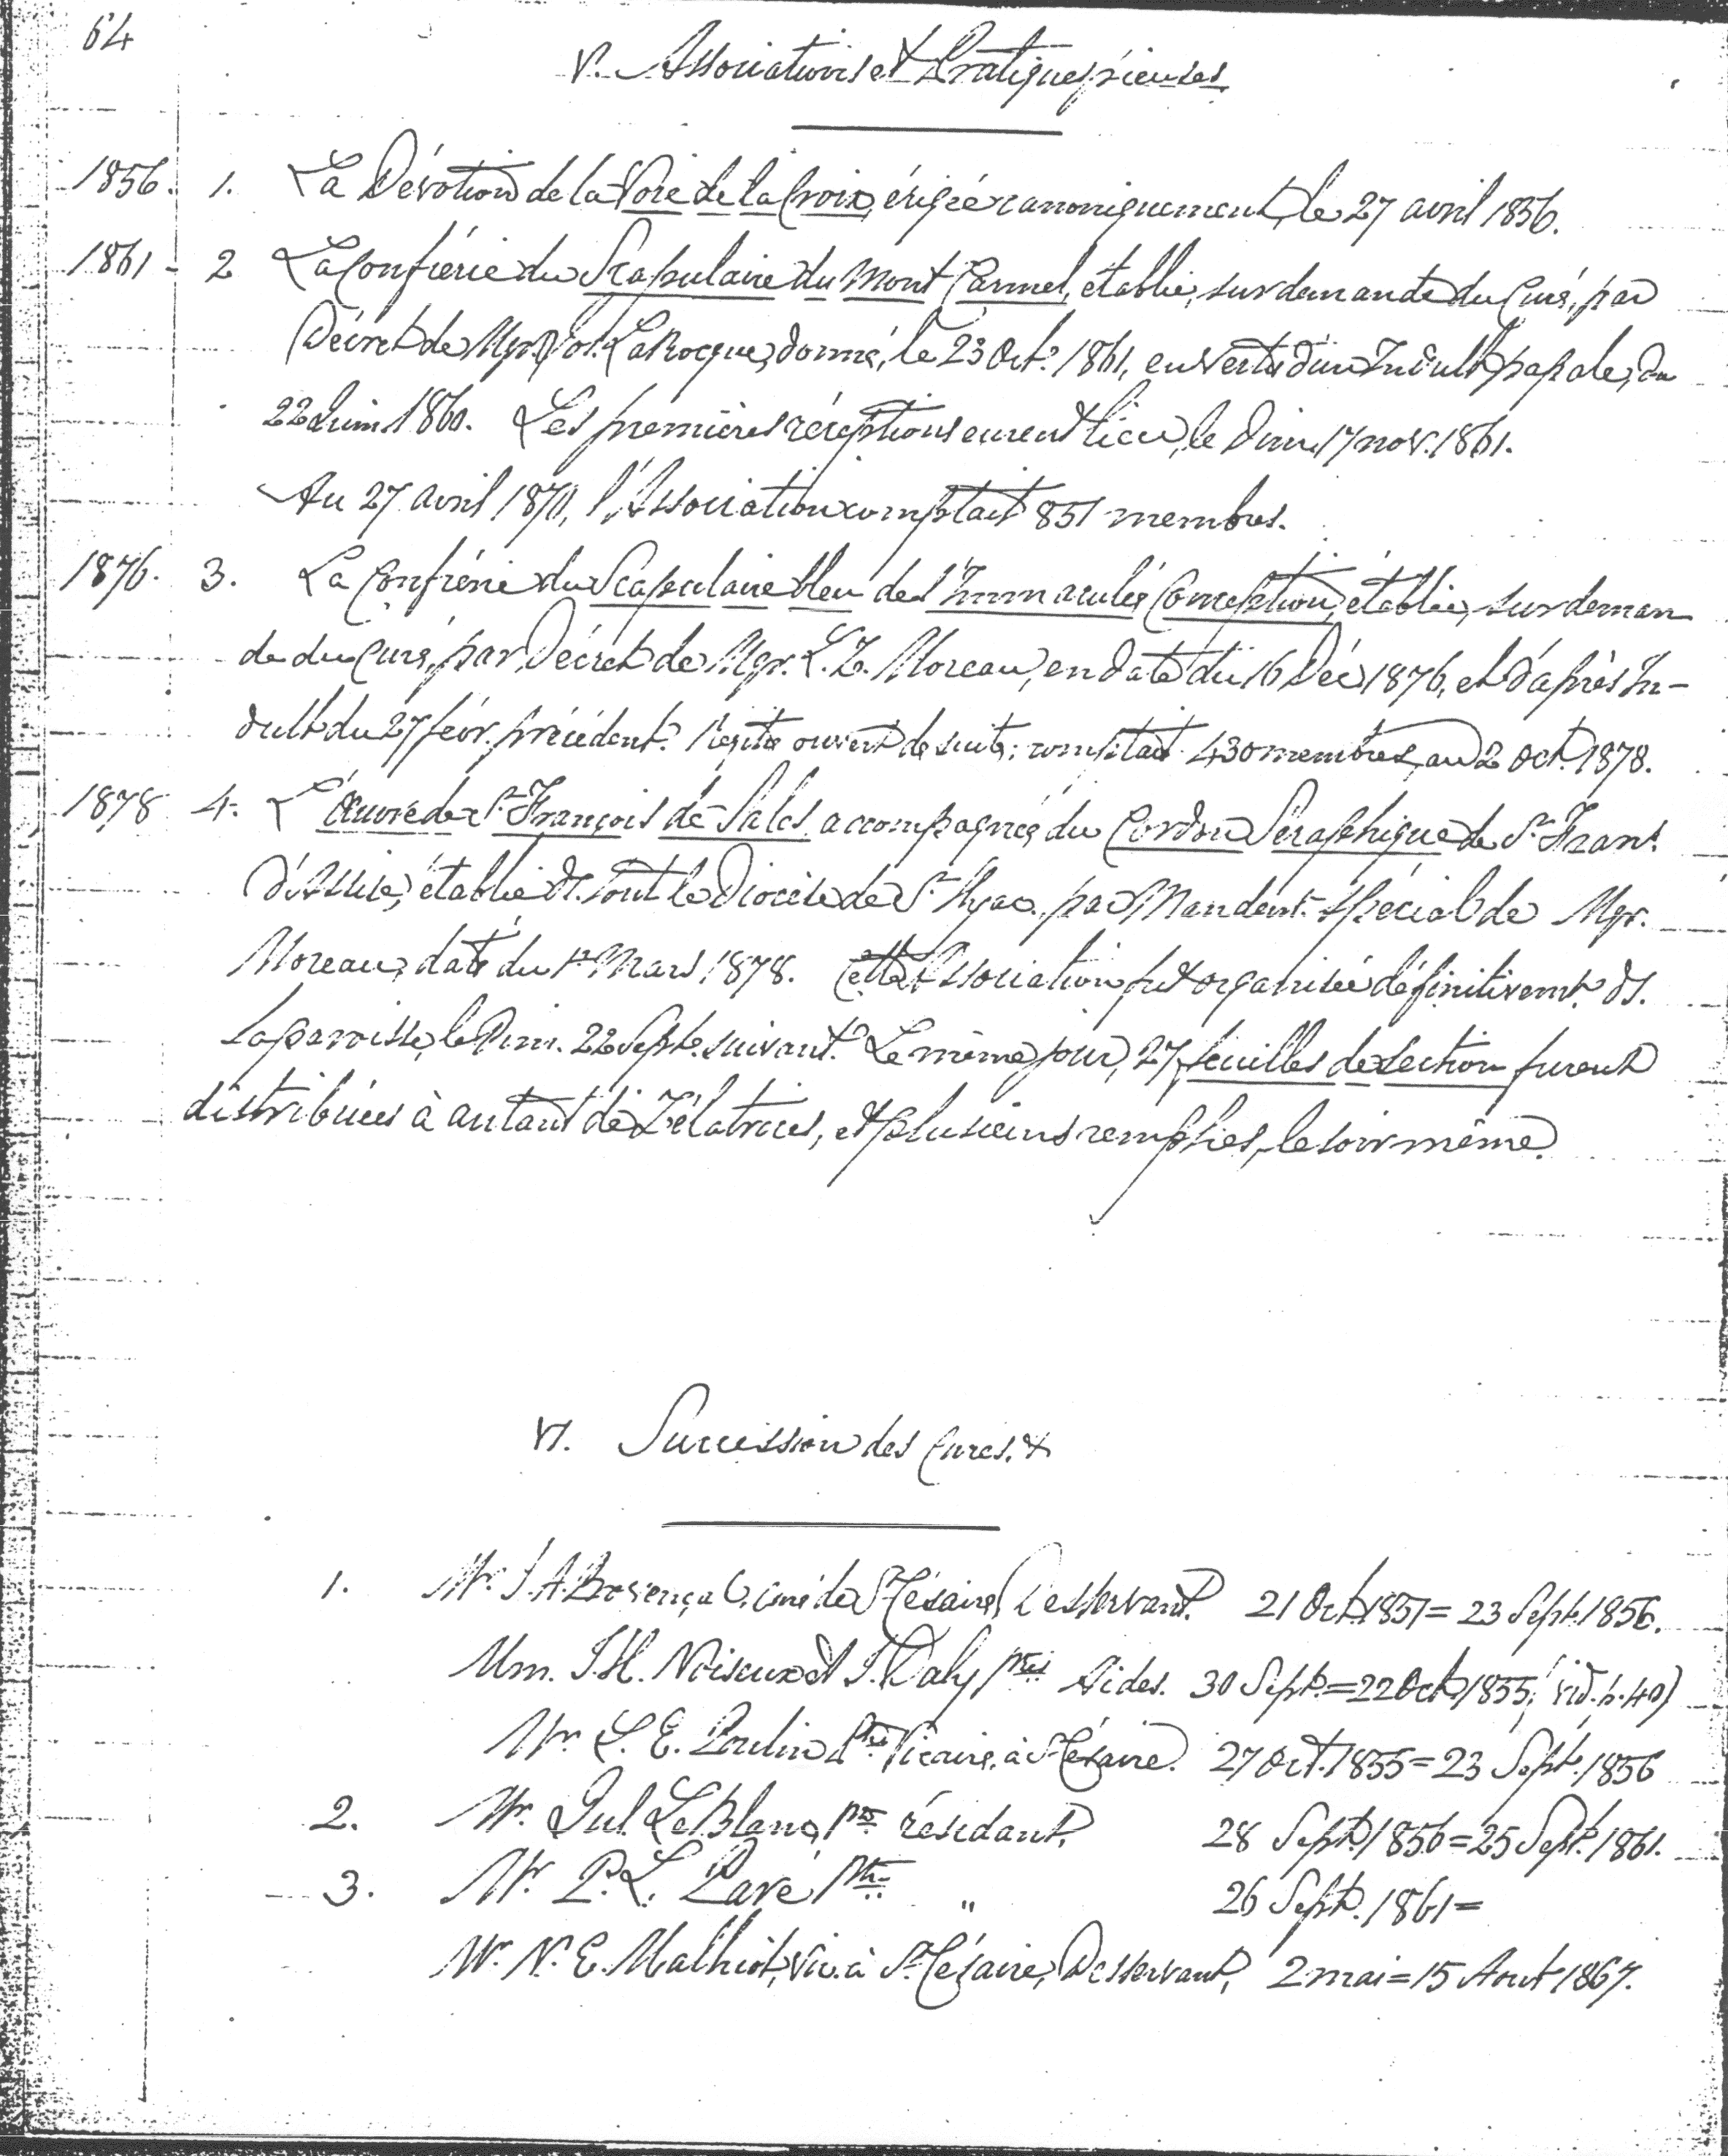 64
V. Associations et Pratiques pieuses
1856. 1. La Dévotion de la Voie de la Croix, érigée canoniquement, le 27 avril 1856.
1861 - 2 La Confrérie du Scapulaire du Mont Carmel, établie, sur demande du Curé, par
Décret de Mgr. Jos. LaRocque, donné, le 23 Oct. 1861, en vertu d'un Indult papale, du
22 Juin 1860. Les premières réceptions eurent lieu, le Dim. 17 nov. 1861.
Au 27 avril 1870, l'Association comptait 851 membres.
1876. 3. La Confrérie du Scapulaire bleu de l'Immaculée Conception, établie, sur deman
de du Curé, par Décret de Mgr. L. Z. Moreau, en date du 16 Déc 1876, et d'après In-
dult du 27 févr. précédent. Registre ouvert de suite; comptait 430 membres, au 2 Oct. 1878.
1878 4. L'Œuvre de St François de Sales accompagnée du Cordon Séraphique de St Frans.
d'Assise, établie ds. tout le Diocèse de St Hyac. par Mandemt. spécial de Mgr.
Moreau, daté du 1er Mars 1878. Cette Association fut organisée définitivemt. ds.
la paroisse, le Dim. 22 Sept. suivant. Le même jour, 27 feuilles de section furent
distribuées à autant de Zélatrices, et plusieurs remplies, le soir même.
VI. Succession des Curés. &
1. Mr. J. A. Provençal, curé de St Césaire, Desservant. 21 Oct. 1851 = 23 Sept. 1856.
Mm. J. H. Noiseux et J. Daly ptres Aides. 30 Sept. = 22 Oct. 1855, (vid. p. 40)
Mr. L. E. Poulin Ptre Vicaire, à St Césaire. 27 Oct. 1855 = 23 Sept. 1856
2. Mr. Jul. LeBlanc, ptre résidant, 28 Sept. 1856 = 25 Sept. 1861.
3. Mr. P. L. Paré ptre " 26 Sept. 1861 =
Mr. N. E. Malhiot, vic. à St Césaire, Desservant, 2 mai = 15 Aout 1867.